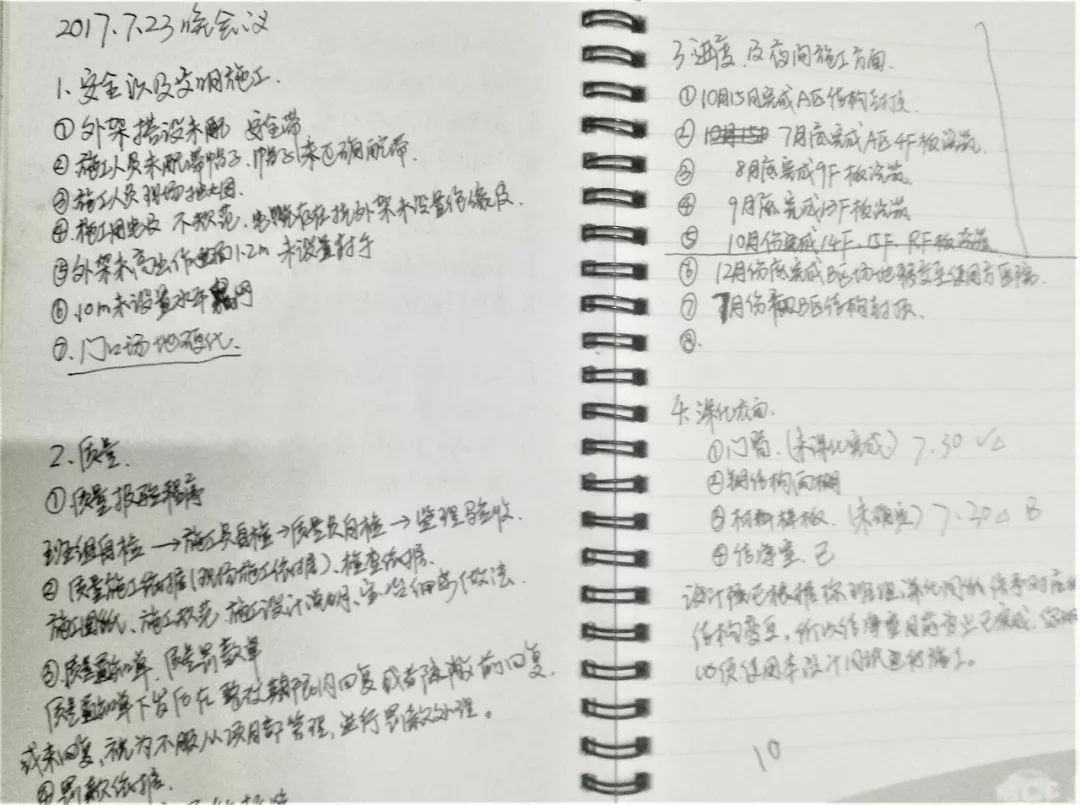 2017.7.23晚会议
1、安全以及文明施工.
①外架搭设未配 安全带
②施工人员未配带帽子,帽子未正确配带.
③施工人员现场抽烟.
④施工用电及 不规范,电缆存在扰外架未设置绝缘皮.
⑤外架未高出作业面1.2m 未设置封手
⑥10m未设置水平网
⑦、门口场地硬化.
2、质量.
①质量报验程序
班组自检→施工员自检→质量员自检→监理验收.
②质量施工依据(现场施工依据)、检查依据.
施工图纸、施工规范 施工设计说明、 做法
③质量通知单.质量罚款单
质量通知单下发后在整改期限内回复或者隐蔽前回复.
或未回复,视为不服从项目部管理,进行罚款处理。
④罚款依据.
3、进度、及夜间施工方面.
①10月15日完成A区结构封顶
② 7月底完成A区4F板浇筑.
③ 8月底完成9F板浇筑.
④ 9月底完成13F板浇筑
⑤ 10月份完成14F、15F、RF板浇筑
⑥ 12月份底完成B区场地移交至使用方
⑦ 月份 B区结构封顶.
⑧.
4、深化方面.
①门窗.(未深化完成) 7.30 √△
②钢结构雨棚
③材料样板.(未确定) 7.30△ B
④
设计院已根据 深化图纸
结构 ,所以 目前 已完成
必须使用本设计图纸进行施工。
10
MCC